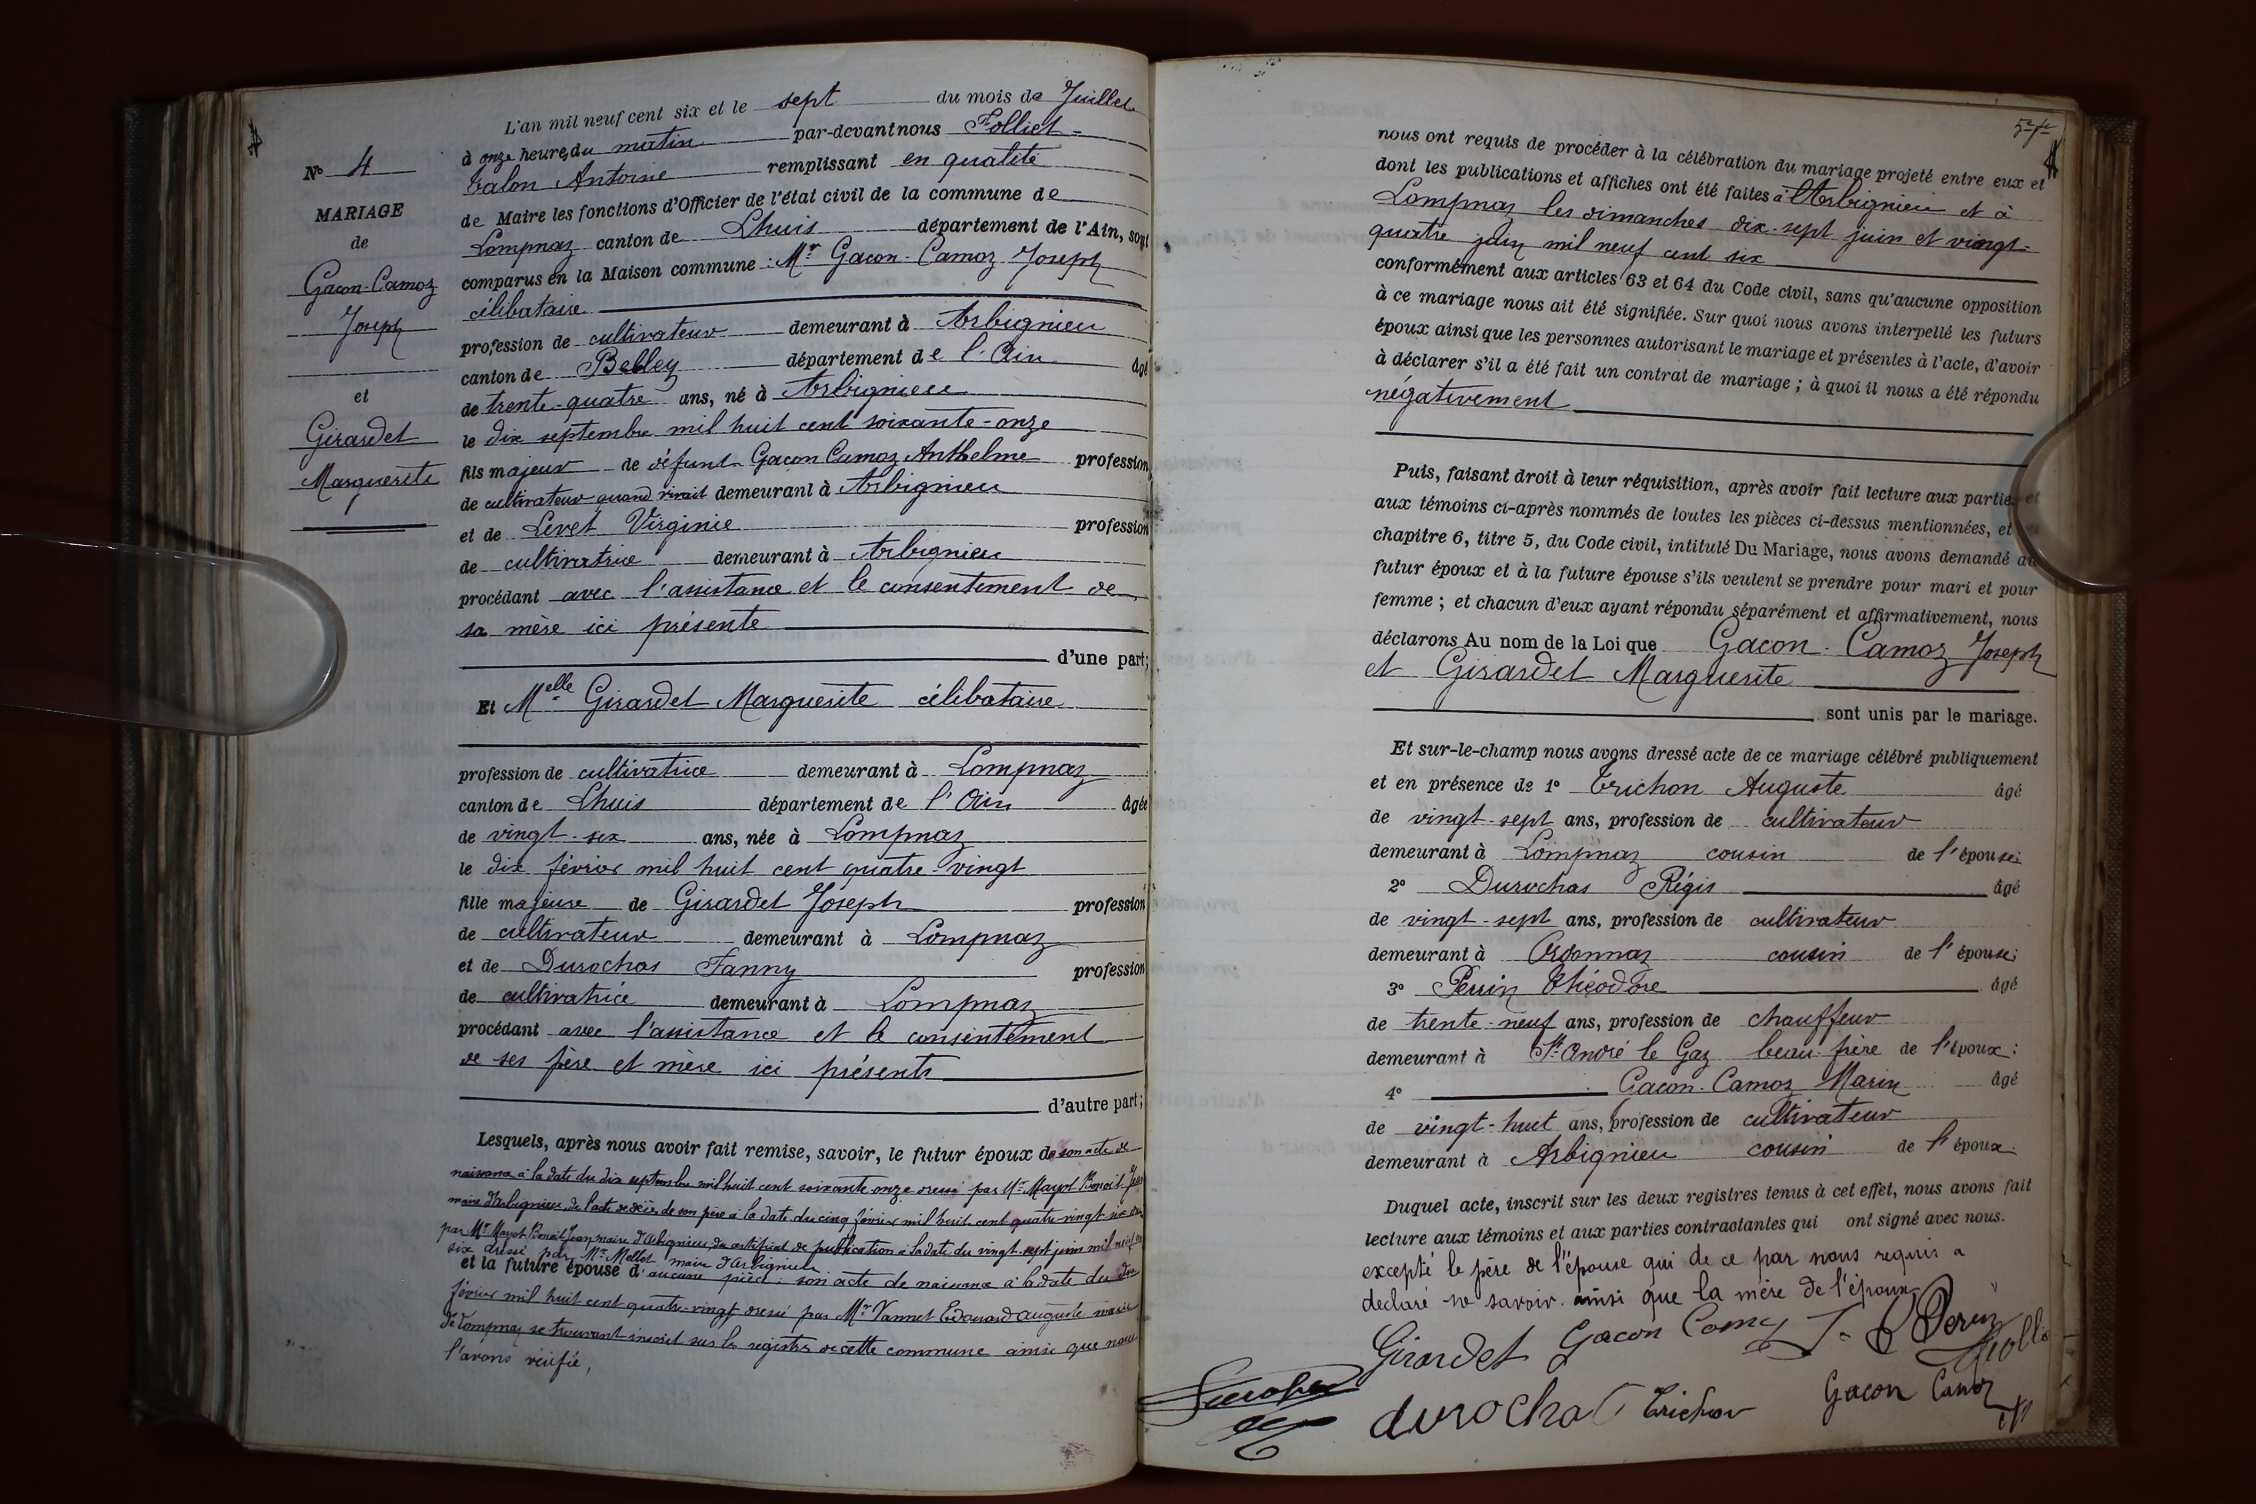 L'an mil neuf cent six et le sept du mois de Juillet
à onze heure du matin par-devant nous Folliet-
Talon Antoine remplissant en qualité
de Maire les fonctions d'Officier de l'état civil de la commune de
Lompnaz canton de Lhuis département de l'Ain, sont
comparus en la Maison commune : Mr Gacon-Camoz Joseph
célibataire
profession de cultivateur demeurant à Arbignieu
canton de Belley département de l'Ain âgé
de trente-quatre ans, né à Arbignieu
le dix septembre mil huit cent soixante-onze
fils majeur de défunt Gacon Camoz Anthelme profession
de cultivateur quand vivait demeurant à Arbignieu
et de Levet Virginie profession
de cultivatrice demeurant à Arbignieu
procédant avec l'assistance et le consentement de
sa mère ici présente
d'une part;
Et Melle Girardet Marguerite célibataire
profession de cultivatrice demeurant à Lompnaz
canton de Lhuis département de l'Ain âgée
de vingt-six ans, née à Lompnaz
le dix février mil huit cent quatre-vingt
fille majeure de Girardet Joseph profession
de cultivateur demeurant à Lompnaz
et de Durochas Fanny profession
de cultivatrice demeurant à Lompnaz
procédant avec l'assistance et le consentement
de ses père et mère ici présents
d'autre part;
Lesquels, après nous avoir fait remise, savoir, le futur époux de son acte de
naissance à la date du dix septembre mil huit cent soixante onze dressé par Mr Mayot Benoit Jean
maire d'Arbignieu, de l'acte de décès de son père à la date du cinq février mil huit cent quatre vingt six
par Mr Mayot Benoit Jean maire d'Arbignieu, du certificat de publication à la date du vingt-sept juin mil neuf cent
six dressé par Mr Mollot maire d'Arbignieu
et la future épouse d'aucune pièce : son acte de naissance à la date du dix
février mil huit cent quatre-vingt dressé par Mr Vannet Edouard Auguste maire
de Lompnaz se trouvant inscrit sur les registres de cette commune ainsi que nous
l'avons vérifié,
No 4
MARIAGE
de
Gacon-Camoz
Joseph
et
Girardet
Marguerite
nous ont requis de procéder à la célébration du mariage projeté entre eux et
dont les publications et affiches ont été faites à Arbignieu et à
Lompnaz les dimanches dix-sept juin et vingt-
quatre juin mil neuf cent six
conformément aux articles 63 et 64 du Code civil, sans qu'aucune opposition
à ce mariage nous ait été signifiée. Sur quoi nous avons interpellé les futurs
époux ainsi que les personnes autorisant le mariage et présentes à l'acte, d'avoir
à déclarer s'il a été fait un contrat de mariage ; à quoi il nous a été répondu
négativement
Puis, faisant droit à leur réquisition, après avoir fait lecture aux parties et
aux témoins ci-après nommés de toutes les pièces ci-dessus mentionnées, et
chapitre 6, titre 5, du Code civil, intitulé Du Mariage, nous avons demandé au
futur époux et à la future épouse s'ils veulent se prendre pour mari et pour
femme ; et chacun d'eux ayant répondu séparément et affirmativement, nous
déclarons Au nom de la Loi que Gacon-Camoz Joseph
et Girardet Marguerite
sont unis par le mariage.
Et sur-le-champ nous avons dressé acte de ce mariage célébré publiquement
et en présence de 1° Trichon Auguste âgé
de vingt-sept ans, profession de cultivateur
demeurant à Lompnaz cousin de l'épouse;
2° Durochas Régis âgé
de vingt-sept ans, profession de cultivateur
demeurant à Ordonnaz cousin de l'épouse;
3° Perrin Théodore âgé
de trente-neuf ans, profession de chauffeur
demeurant à St André le Gaz beau-frère de l'époux;
4° Gacon-Camoz Marin âgé
de vingt-huit ans, profession de cultivateur
demeurant à Arbignieu cousin de l'époux.
Duquel acte, inscrit sur les deux registres tenus à cet effet, nous avons fait
lecture aux témoins et aux parties contractantes qui ont signé avec nous.
excepté le père de l'épouse qui de ce par nous requis a
déclaré ne savoir ainsi que la mère de l'époux
Girardet Gacon Camoz
durochat Trichon Gacon Camoz